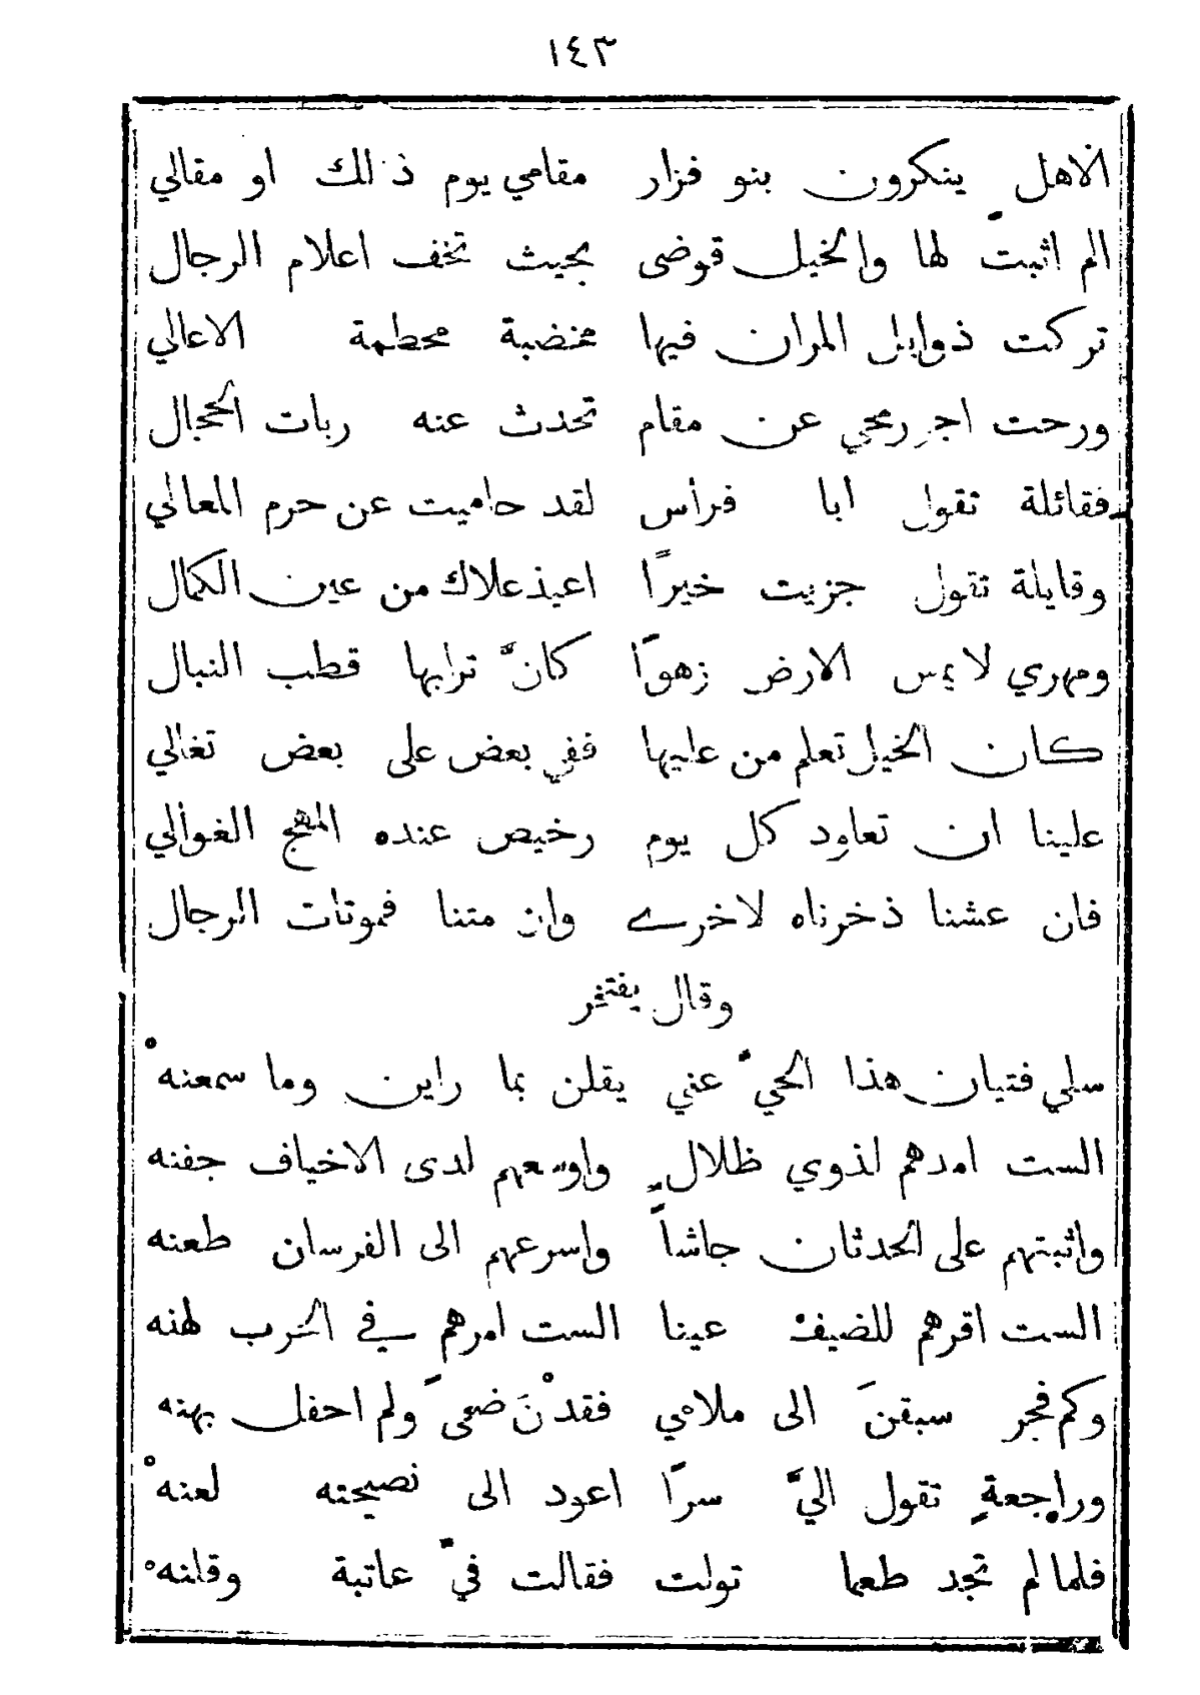 ١٤٣
الاهل ينكرون بنو فزار مقامي يوم ذلك او مقالي
الم اثبت لها والخيل قوضى بحيث تخف اعلام الرجال
تركت ذوابل المران فيها مخضبة محطمة الاعالي
ورحت اجر رمحي عن مقام تحدث عنه ربات الحجال
فقائلة تقول ابا فرأس لقد حاميت عن حرم المعالي
وقايلة تقول جزيت خيرًا اعيذ علاك من عين الكمال
ومهري لا يمس الارض زهوًا كانَّ ترابها قطب النبال
كان الخيل تعلم من عليها ففي بعض على بعض تغالي
علينا ان تعاود كل يوم رخيص عنده المهج الغوالي
فان عشنا ذخرناه لاخرے وان متنا فموتات الرجال
وقال يفتخر
سلي فتيان هذا الحيّ عني يقلن بما راين وما سمعنهْ
الست امدهم لذوي ظلالٍ واوسعهم لدى الاخياف جفنه
واثبتهم على الحدثان جاشاً واسرعهم الى الفرسان طعنه
الست اقرهم للضيف عينا الست امرهم في الحرب لهنه
وكم فجر سبقنَ الى ملامي فقدْنَ ضحىً ولم احفل بهنه
وراجعةٍ تقول اليَّ سرًا اعود الى نصيحته لعنهْ
فلما لم تجد طعما تولت فقالت فيَّ عاتبة وقلنهْ